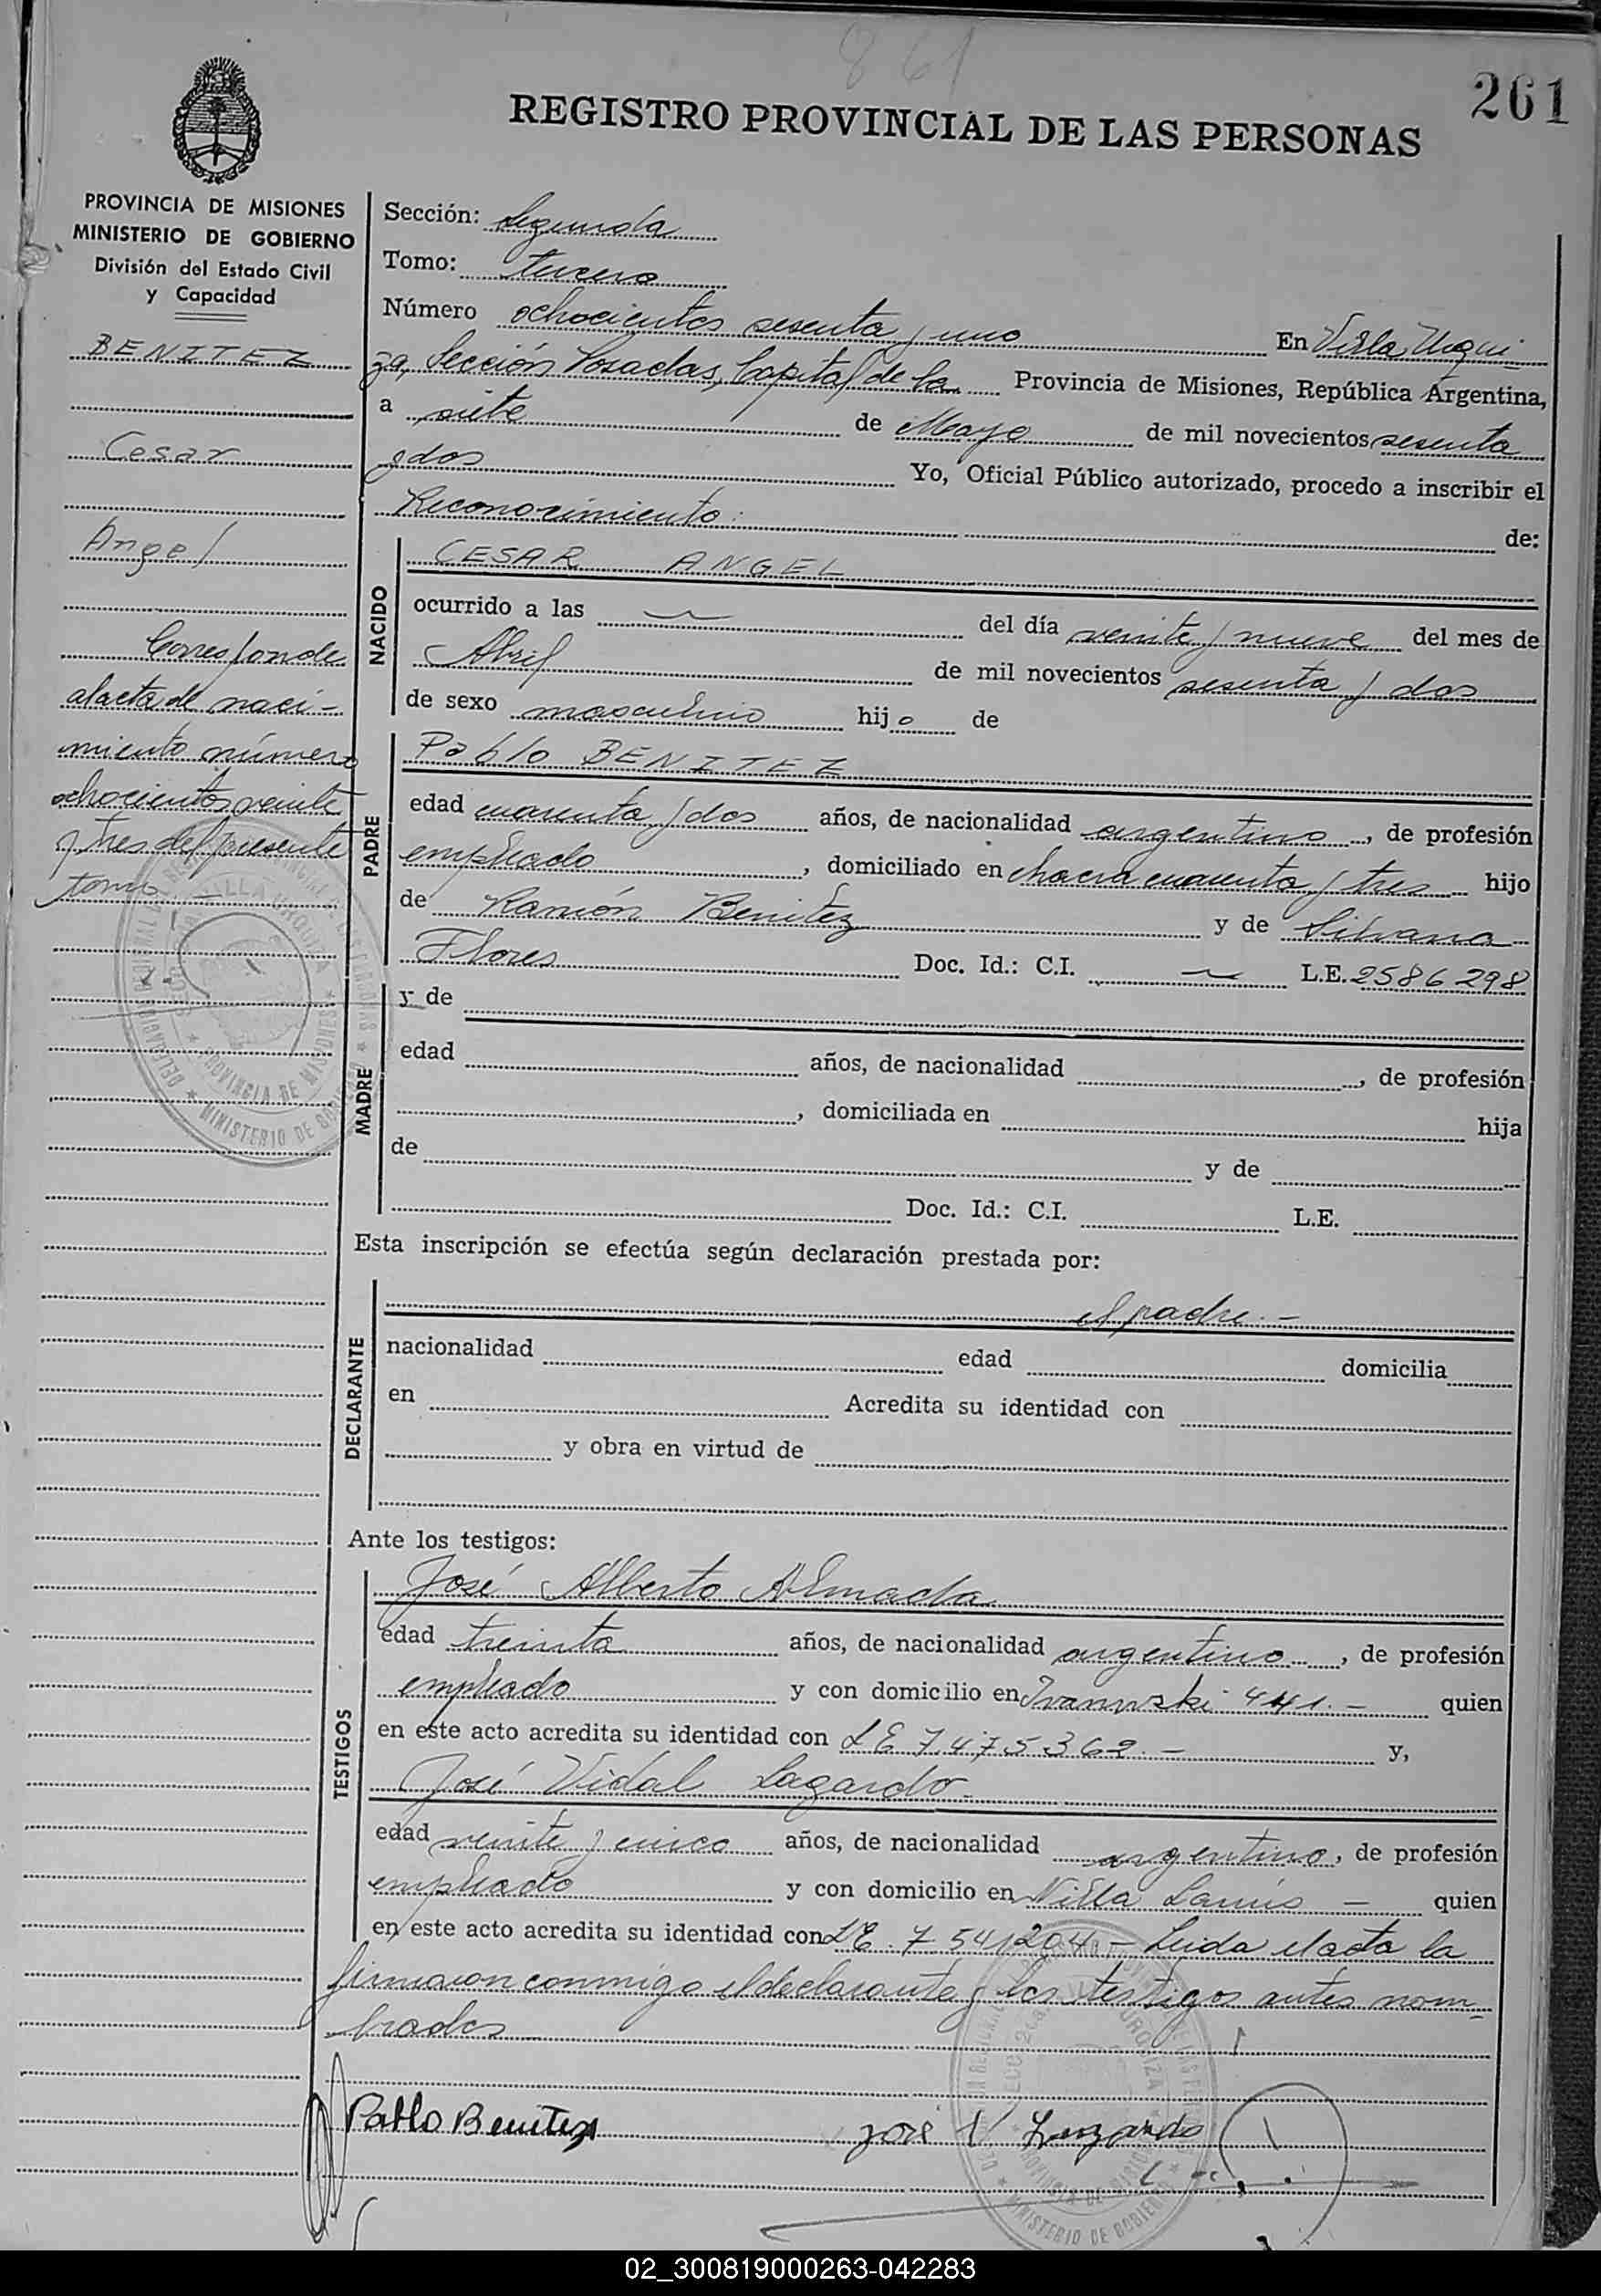 861
261
REGISTRO PROVINCIAL DE LAS PERSONAS
PROVINCIA DE MISIONES
MINISTERIO DE GOBIERNO
División del Estado Civil
y Capacidad
BENITEZ
Cesar
Angel
Corresponde
al acta de naci-
miento número
ochocientos veinte
y tres del presente
tomo
Sección: Segunda
Tomo: tercero
Número ochocientos sesenta y uno En Villa Urqui-
za, Sección Posadas, Capital de la Provincia de Misiones, República Argentina,
a siete de Mayo de mil novecientos sesenta
y dos Yo, Oficial Público autorizado, procedo a inscribir el
Reconocimiento: de:
NACIDO
CESAR ANGEL
ocurrido a las del día veinte y nueve del mes de
Abril de mil novecientos sesenta y dos
de sexo masculino hijo de
PADRE
Pablo BENITEZ
edad cuarenta y dos años, de nacionalidad argentino, de profesión
empleado, domiciliado en chacra cuarenta y tres hijo
de Ramón Benitez y de Silvana
Flores Doc. Id.: C.I. L.E. 2586298
MADRE
y de
edad años, de nacionalidad , de profesión
, domiciliada en hija
de y de
Doc. Id.: C.I. L.E.
Esta inscripción se efectúa según declaración prestada por:
DECLARANTE
el padre.-
nacionalidad edad domicilia
en Acredita su identidad con
y obra en virtud de
Ante los testigos:
TESTIGOS
José Alberto Almada
edad treinta años, de nacionalidad argentino, de profesión
empleado y con domicilio en 441.- quien
en este acto acredita su identidad con LE 7.475362.- y,
José Vidal Lagardo
edad veinte y cinco años, de nacionalidad argentino, de profesión
empleado y con domicilio en Villa Lanús - quien
en este acto acredita su identidad con LE. 7541204 - Leida el acta la
firmaron conmigo el declarante y los testigos antes nom-
brados
Pablo Benitez
José V Lagardo
02_300819000263-042283